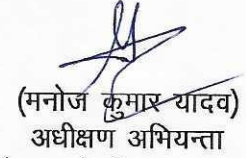 (मनोज कुमार यादव)
अधीक्षण अभियन्ता